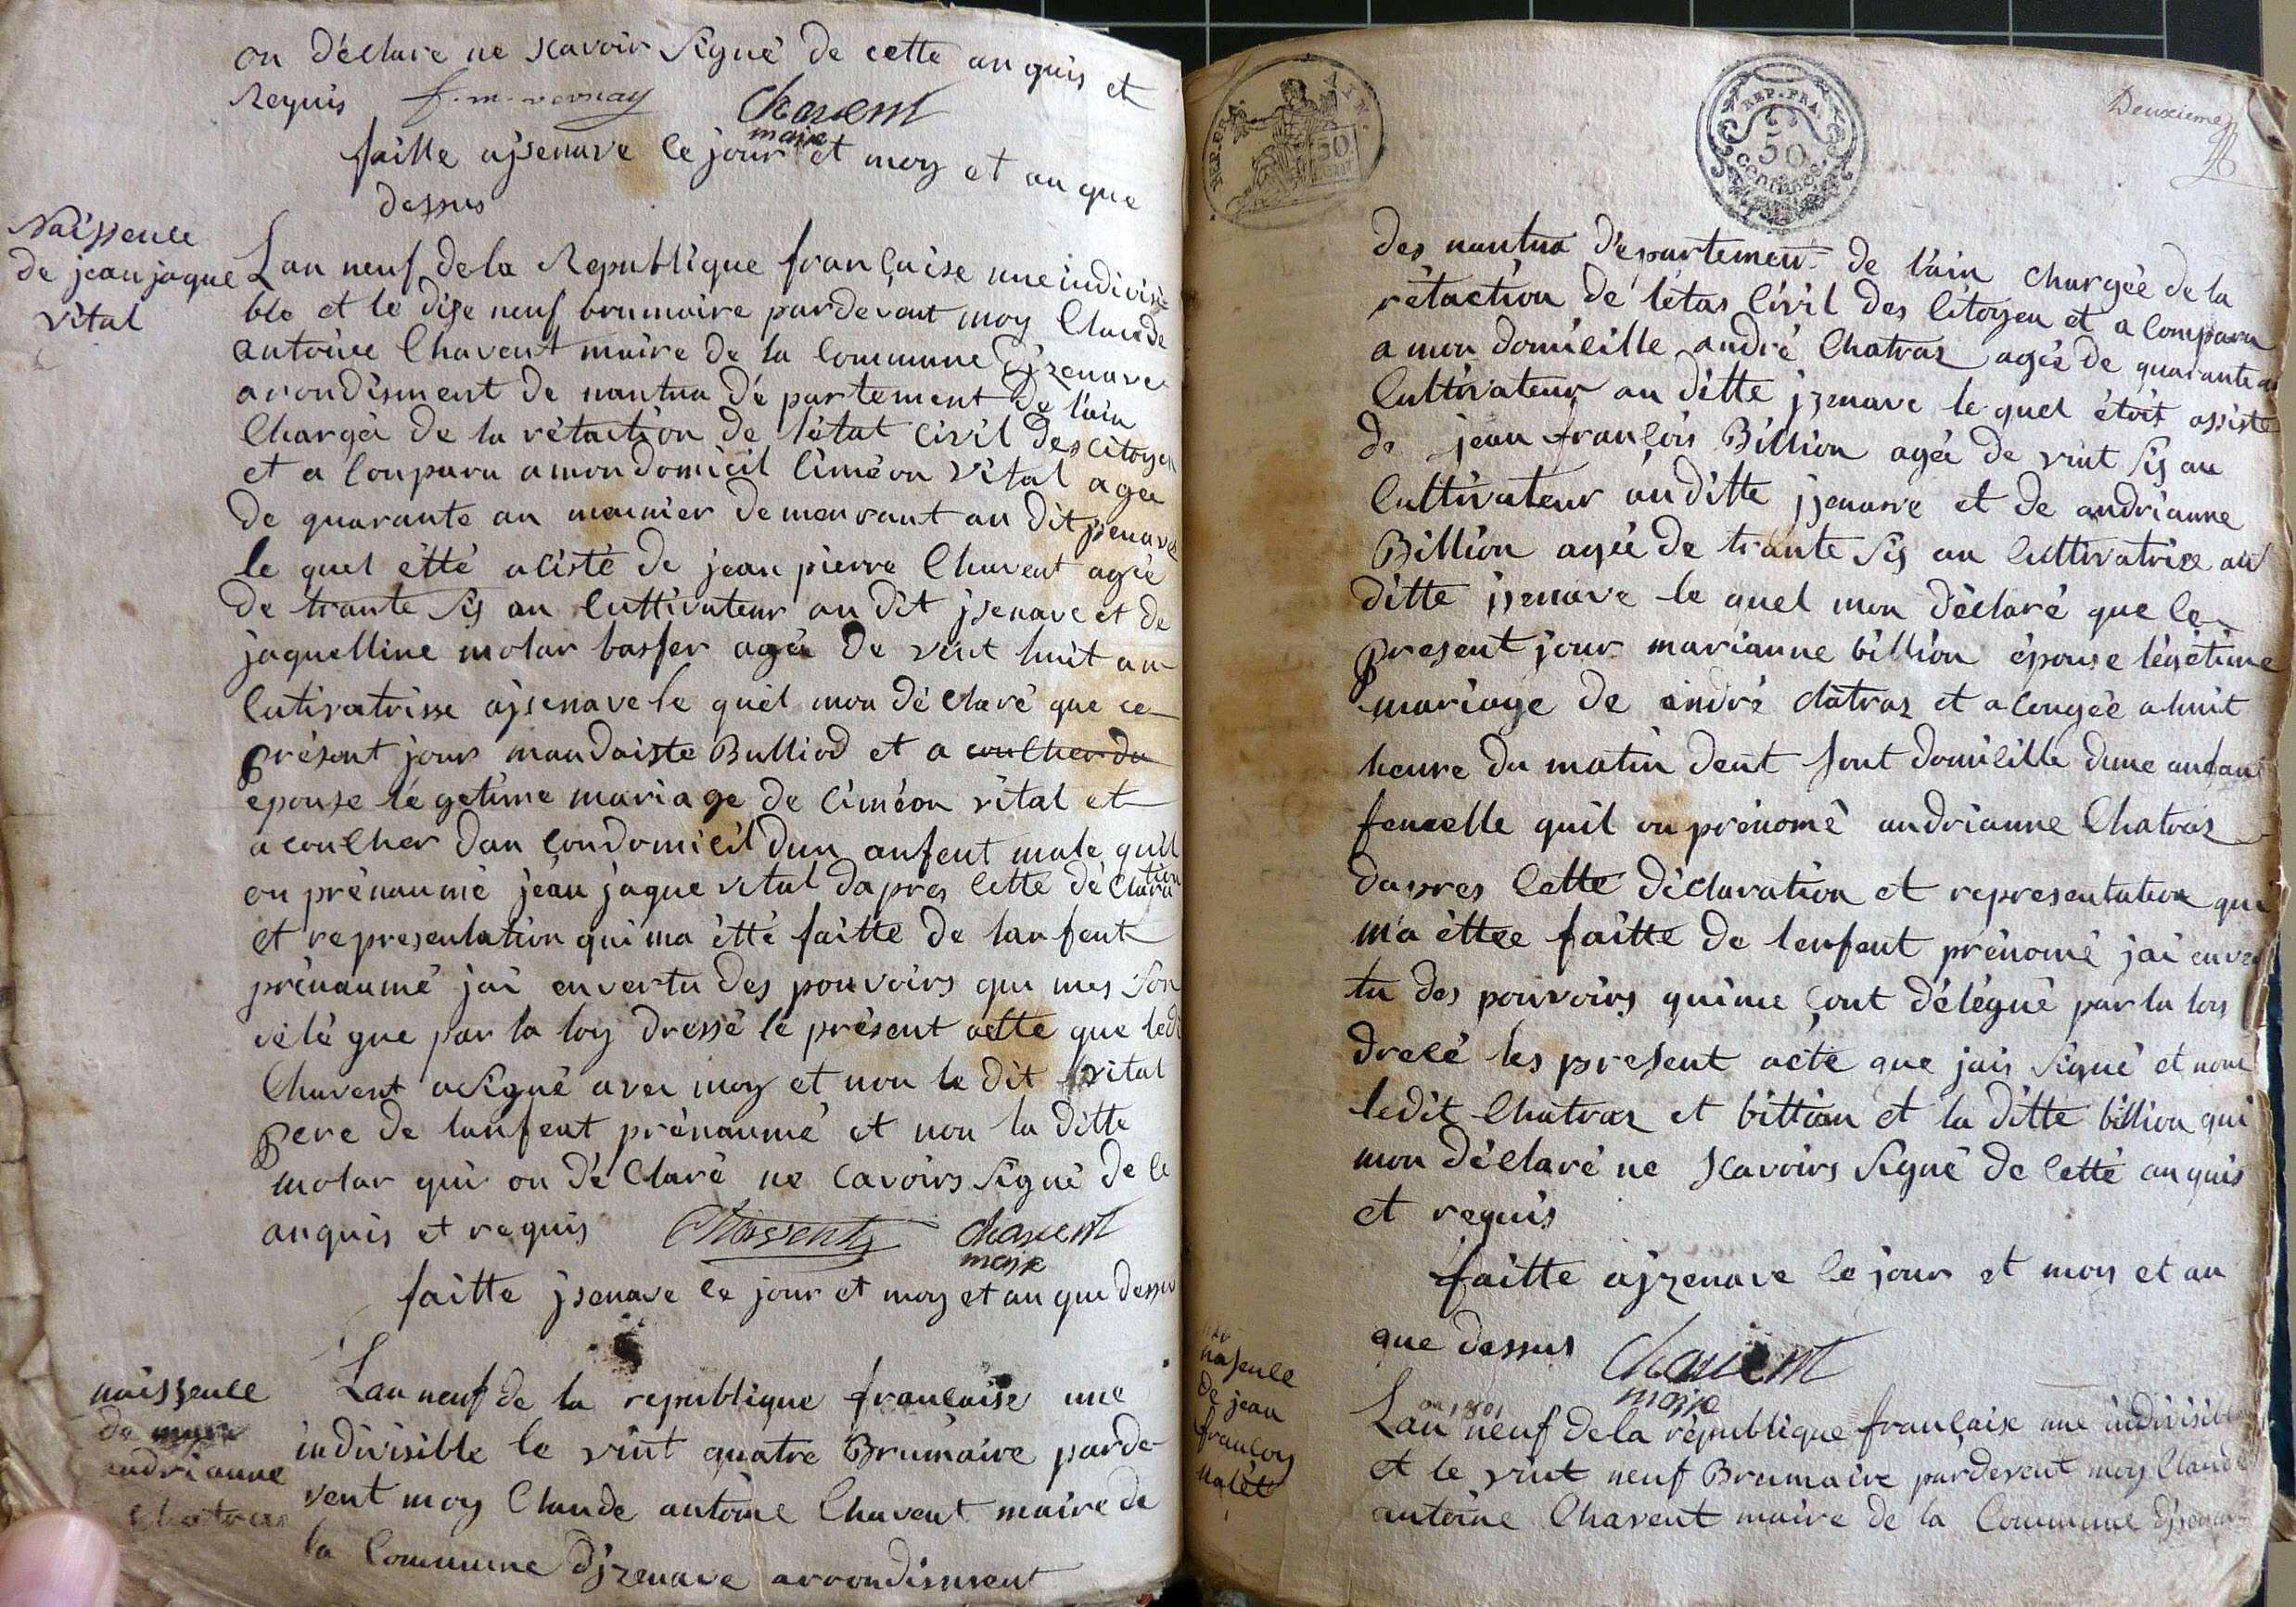 on déclare ne scavoir signé de cette an quis et
Requis f. m. vernay Chavent
maire
faitte ajsenave le jour et moy et an que
dessus
Naissence
de jean jaque
vital
Lan neuf dela Republique françaisse une indivisi-
ble et le dise neuf brumaire pardevant moy Claude
antoine Chavent maire de la Commune djzenave
arondisment de nantua département de lain
Chargéé de la rétaction de létat civil des citoyen
et a Comparu amondomicil Ciméon vital agée
de quarante an meunier demeurant au dit jsenave
le quel étté acisté de jean pierre Chavent agée
de trante sis an Cultivateur au dit jsenave et de
jaquelline molar basser agée de vint huit an
Cutivatrisse ajsenave le quel mon déclaré que ce
présent jour maudaiste Bulliod et a coulcher du
epouse légetime mariage de Ciméon vital et
a coulcher dan Condomicil dun anfent male quil
on prénaumé jéan jaque vital dapres Cette déClara
tion
et representation qui ma étté faitte de lanfent
prénaumé jai envertu des pouvoirs qui mes son
délégue par la loy dressé le présent actte que ledi
Chavent a signé avec moy et non le dit vital
pere de lanfent prénaumé et non la ditte
molar qui on déClaré ne Cavoirs signé de Ce
anquis et requis Chavent Chavent
maire
faitte jsenave le jour et moy et an que dessus
naissence
de
andrianne
Chatras
Lan neuf de la republique francaise une
indivisible le vint quatre Brumaire parde-
vent moy Claude antoine Chavent maire de
la Commune djzenave arrondisment
REP. FRA.
50
CENT.
REP. FRA.
50
centimes
Deuxieme
des nantua département de lain Chargéé de la
rétaction de létas Civil des Citoyen et a Comparu
a mon domicille andré Chatras agée de quarante an
Cultivateur au ditte jzenave le quel étoit assiste
de jean françois Billion agée de vint sis an
Cultivateur au ditte jsenave et de andrianne
Billion agée de trante sis an Cultivatrice au
ditte jsenave le quel mon déclaré que le
present jour marianne billion épouse légétime
mariage de andré Chatras et a cougéé a huit
heure du matin dent sont domicille dune anfant
femelle quil on prénomé andrianne Chatras
dapres Cette déclaration et representation qui
ma éttee faitte de lenfent prénomé jai enver
tu des pouvoirs quime Cont délégué par la lois
drecé les present acte que jais signé et nom
ledit Chatras et billion et la ditte billion qui
mon déclaré ne scavoirs signé de Cetté anquis
et requis
faitte ajzenave le jour et moy et an
que dessus Chavent
maire
nasence
de jean
françoy
nalét
an 1801
Lan neuf dela république française une indivisible
et le vint neuf Brumaire pardevent moy Claude
antoine Chavent maire de la Commune djsenave